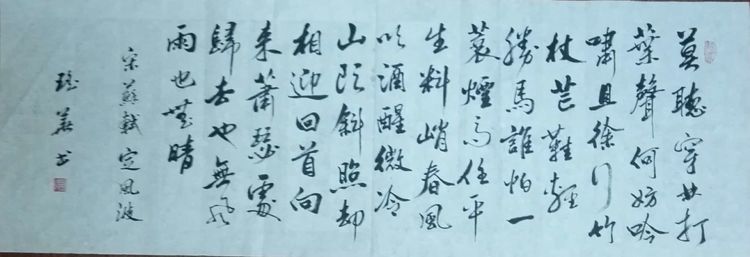 莫聽穿林打
葉聲何妨吟
嘯且徐行竹
杖芒鞋輕
勝馬誰怕一
蓑煙雨任平
生料峭春風
吹酒醒微冷
山頭斜照却
相迎回首向
来蕭瑟處
歸去也無風
雨也無晴
宋蘇軾定風波
书